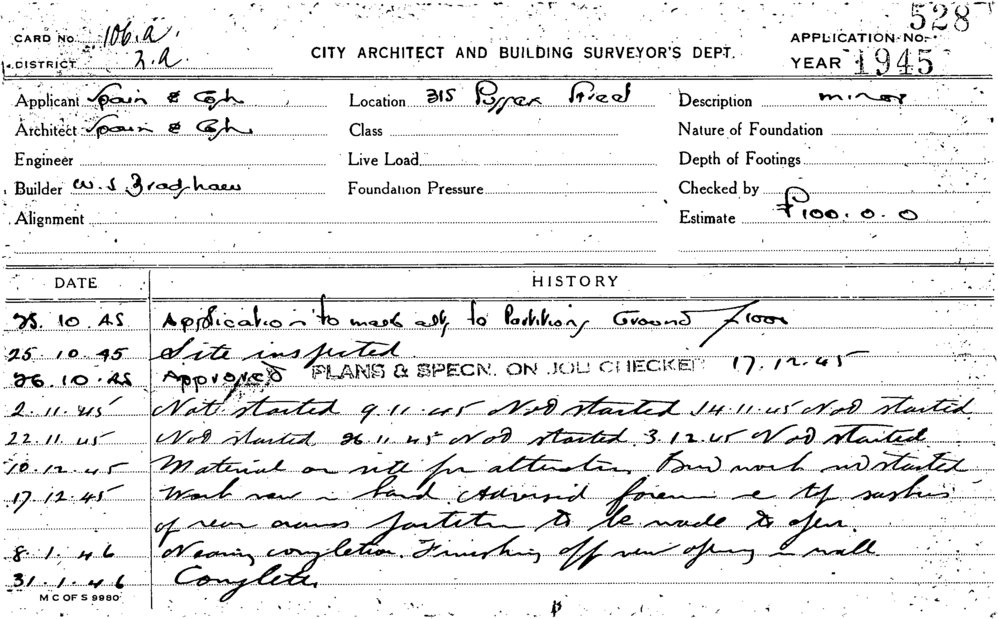 528
CARD No. 106.a. APPLICATION No.
DISTRICT 2.a. CITY ARCHITECT AND BUILDING SURVEYOR'S DEPT. YEAR 1945
Applicant Spain & Cosh Location 215 Street Description minor
Architect Spain & Cosh Class Nature of Foundation
Engineer Live Load Depth of Footings
Builder W. S Bradshaw Foundation Pressure Checked by
Alignment Estimate £100.0.0
DATE HISTORY
25.10.45 Application to make to Partitions Ground floor
25.10.45 Site inspected
26.10.45 Approved PLANS & SPECN. ON JOB CHECKED 17.12.45
2.11.45 Not started 9.11.45 Not started 14.11.45 Not started
22.11.45 Not started 26.11.45 Not started 3.12.45 Not started
10.12.45 Material on site for alteration. work not started
17.12.45 Work now in hand. Advised top sashes
of rear partition to be made to open.
8.1.46 Nearing completion. Finishing off new opening in wall
31.1.46 Complete
M C OF S 9980